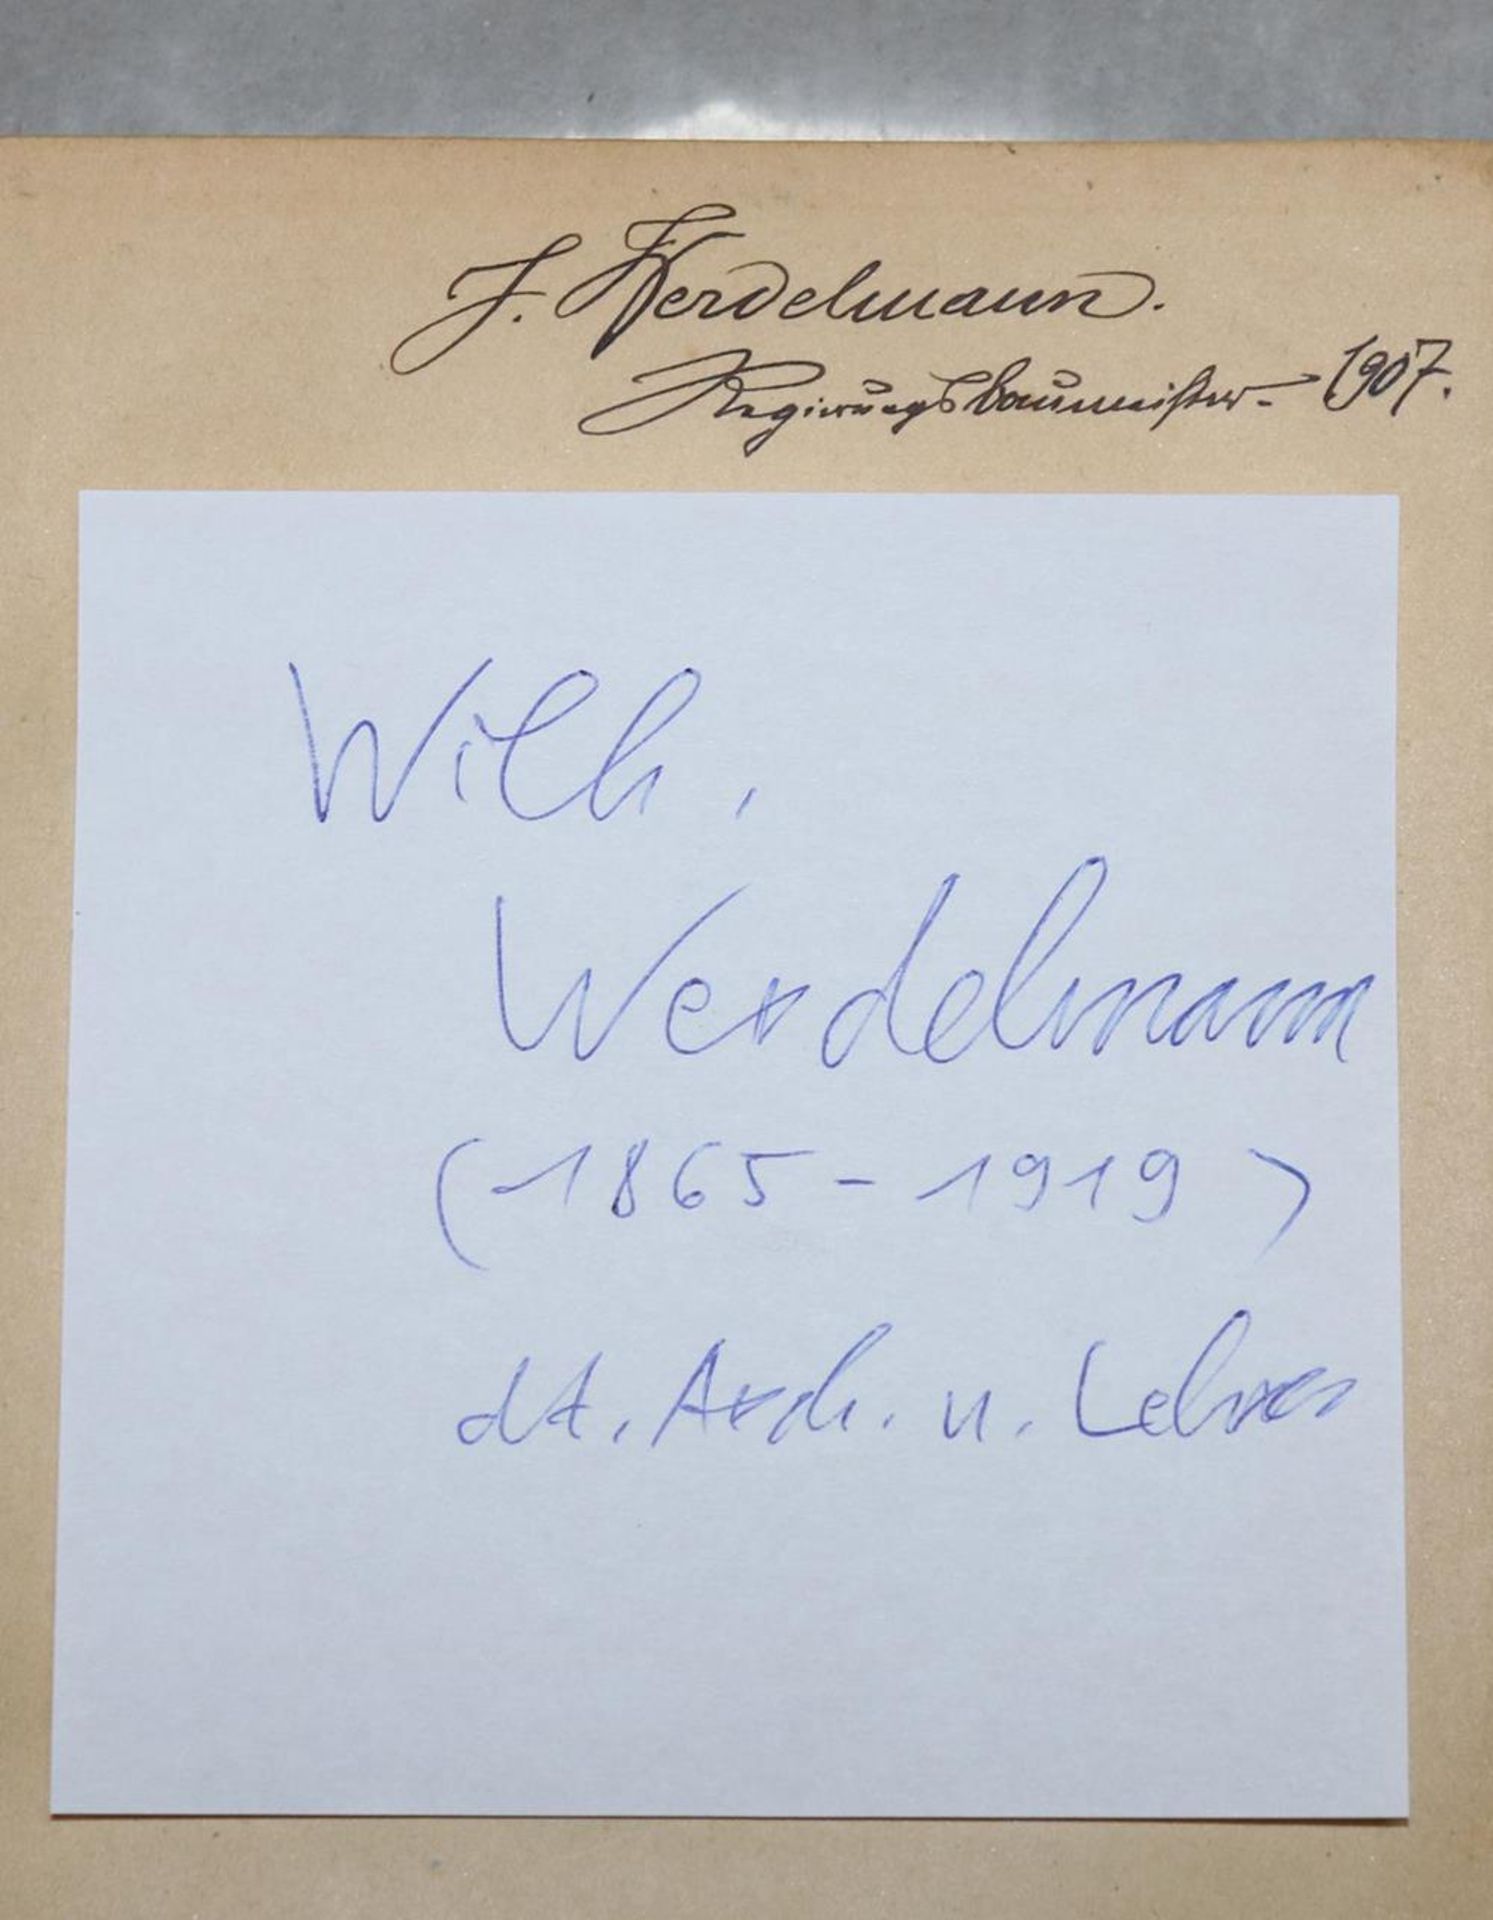 J. Werdelmann.
Regierungsbaumeister. 1907.
Wilh.
Werdelmann
(1865-1919)
dt. Arch. u. Lehrer